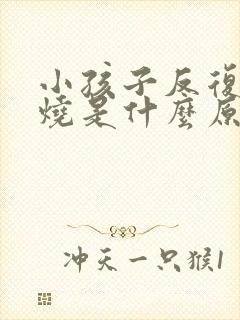 小孩子反復
燒是什麼原
冲天一只猴1